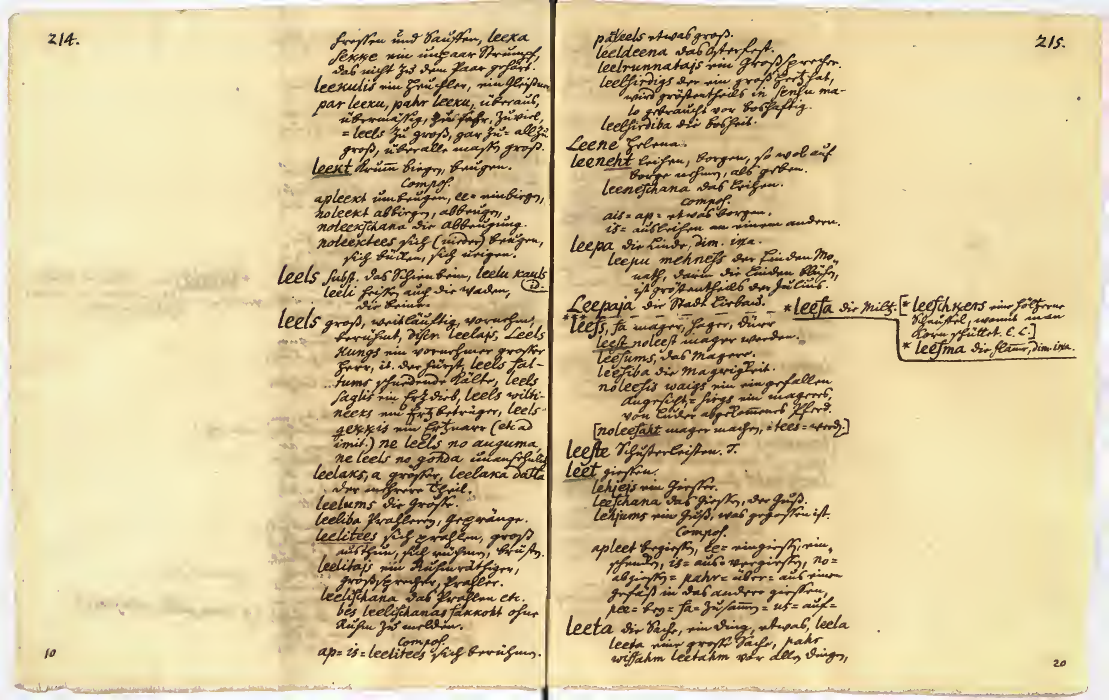 214.
fressen und Sauffen, leexa
sekke ein unpaar Strumpf,
das nicht zu dem Paar gehört.
leekulis ein Heuchler, ein Gleißner
par leeku, pahr leeku, überaus,
übermäßig, zu sehr, zuviel,
= leels zu groß, gar zu= allzu
groß, überalle maaß groß.
leekt krum̄ biegen, beugen.
Compos.
apleekt umbeugen, ee= einbiegen,
noleekt abbiegen, abbeugen,
noleekschana die Abbeugung.
noleektees sich (nieder) beugen,
sich bücken, sich neigen.
leels subst. das Schienbein, leelu kauls
leeli heist auch die waden, D.
die beine
leels groß, weitläuftig, vornehm,
berühmt, dicker. leelais, Leels
kungs ein vornehmer grosser
Herr, it. der Fürst, leels sal-
tums schneidende Kälte, leels
saglis ein Ertzdieb, leels wilti-
neeks ein Ertzbetrüger, leels
gekkis ein Ertznarr (etc ad
imit.) ne leels no auguma
ne leels no gohda unansehnlich
leelaks, a grösser, leelaka datta
der mehrere Theil.
leelums die Grösse.
leeliba Prahlerey, Gepränge.
leelitees sich prahlen, groß
austhun, sich rühmen, brüsten.
leelitajs ein Ruhmräthiger,
großsprecher, Prahler.
leelischana das Prahlen etc.
bes leelischanas sakkoht ohne
Ruhm zu melden.
Compos.
ap= is= leelitees sich berühmen.
10
215.
paleels etwas groß.
leeldeena das Osterfest.
leelrunnatajs ein Großsprecher.
leelsirdigs der ein groß Hertz hat,
wird größentheils in sensu ma-
lo gebraucht vor boshaftig.
leelsirdiba die Bosheit.
Leene Helena.
leeneht leihen, borgen, so wol auf
borge nehmen, als geben.
leeneschana das Leihen.
compos.
ais= ap= etwas borgen.
is= ausleihen an einem andern.
leepa die Linde, dim. ixa.
leepu mehness der Linden Mo-
nath, darin die Linden blühn,
ist größentheils der Julius.
Leepaja die Stadt Liebau.
*leesa die Miltz. [*leeschkers eine höltzerne
Schaufel, womit man
Korn schüttet. C. C.]
* leesma die flamme, dim. ixa.
leess, sa mager, hager, dürr
leest noleest mager werden.
leesums, das Magere.
leesiba die Magrigkeit.
noleesis waigs ein eingefallen
angesicht= sirgs ein mageres,
von Luder abgekommenes Pferd.
[noleesaht mager machen, itees= werd.]
leeste Schusterleisten. T.
leet giessen.
lehjejs ein Giesser.
leeschana das Giessen, der Guß.
lehjums ein Guß, was gegossen ist.
Compos.
apleet begiessen, ee= eingiessen, ein-
schencken, is= aus= vergiessen, no=
abgiessen= pahr= über= aus einem
gefäß in das andere giessen,
pee= bey= sa= zusam̄en= us= auf=
leeta die Sache, ein ding, etwas, leela
leeta eine grosse Sache, pahr
wissahm leetahm vor allen dingen,
20